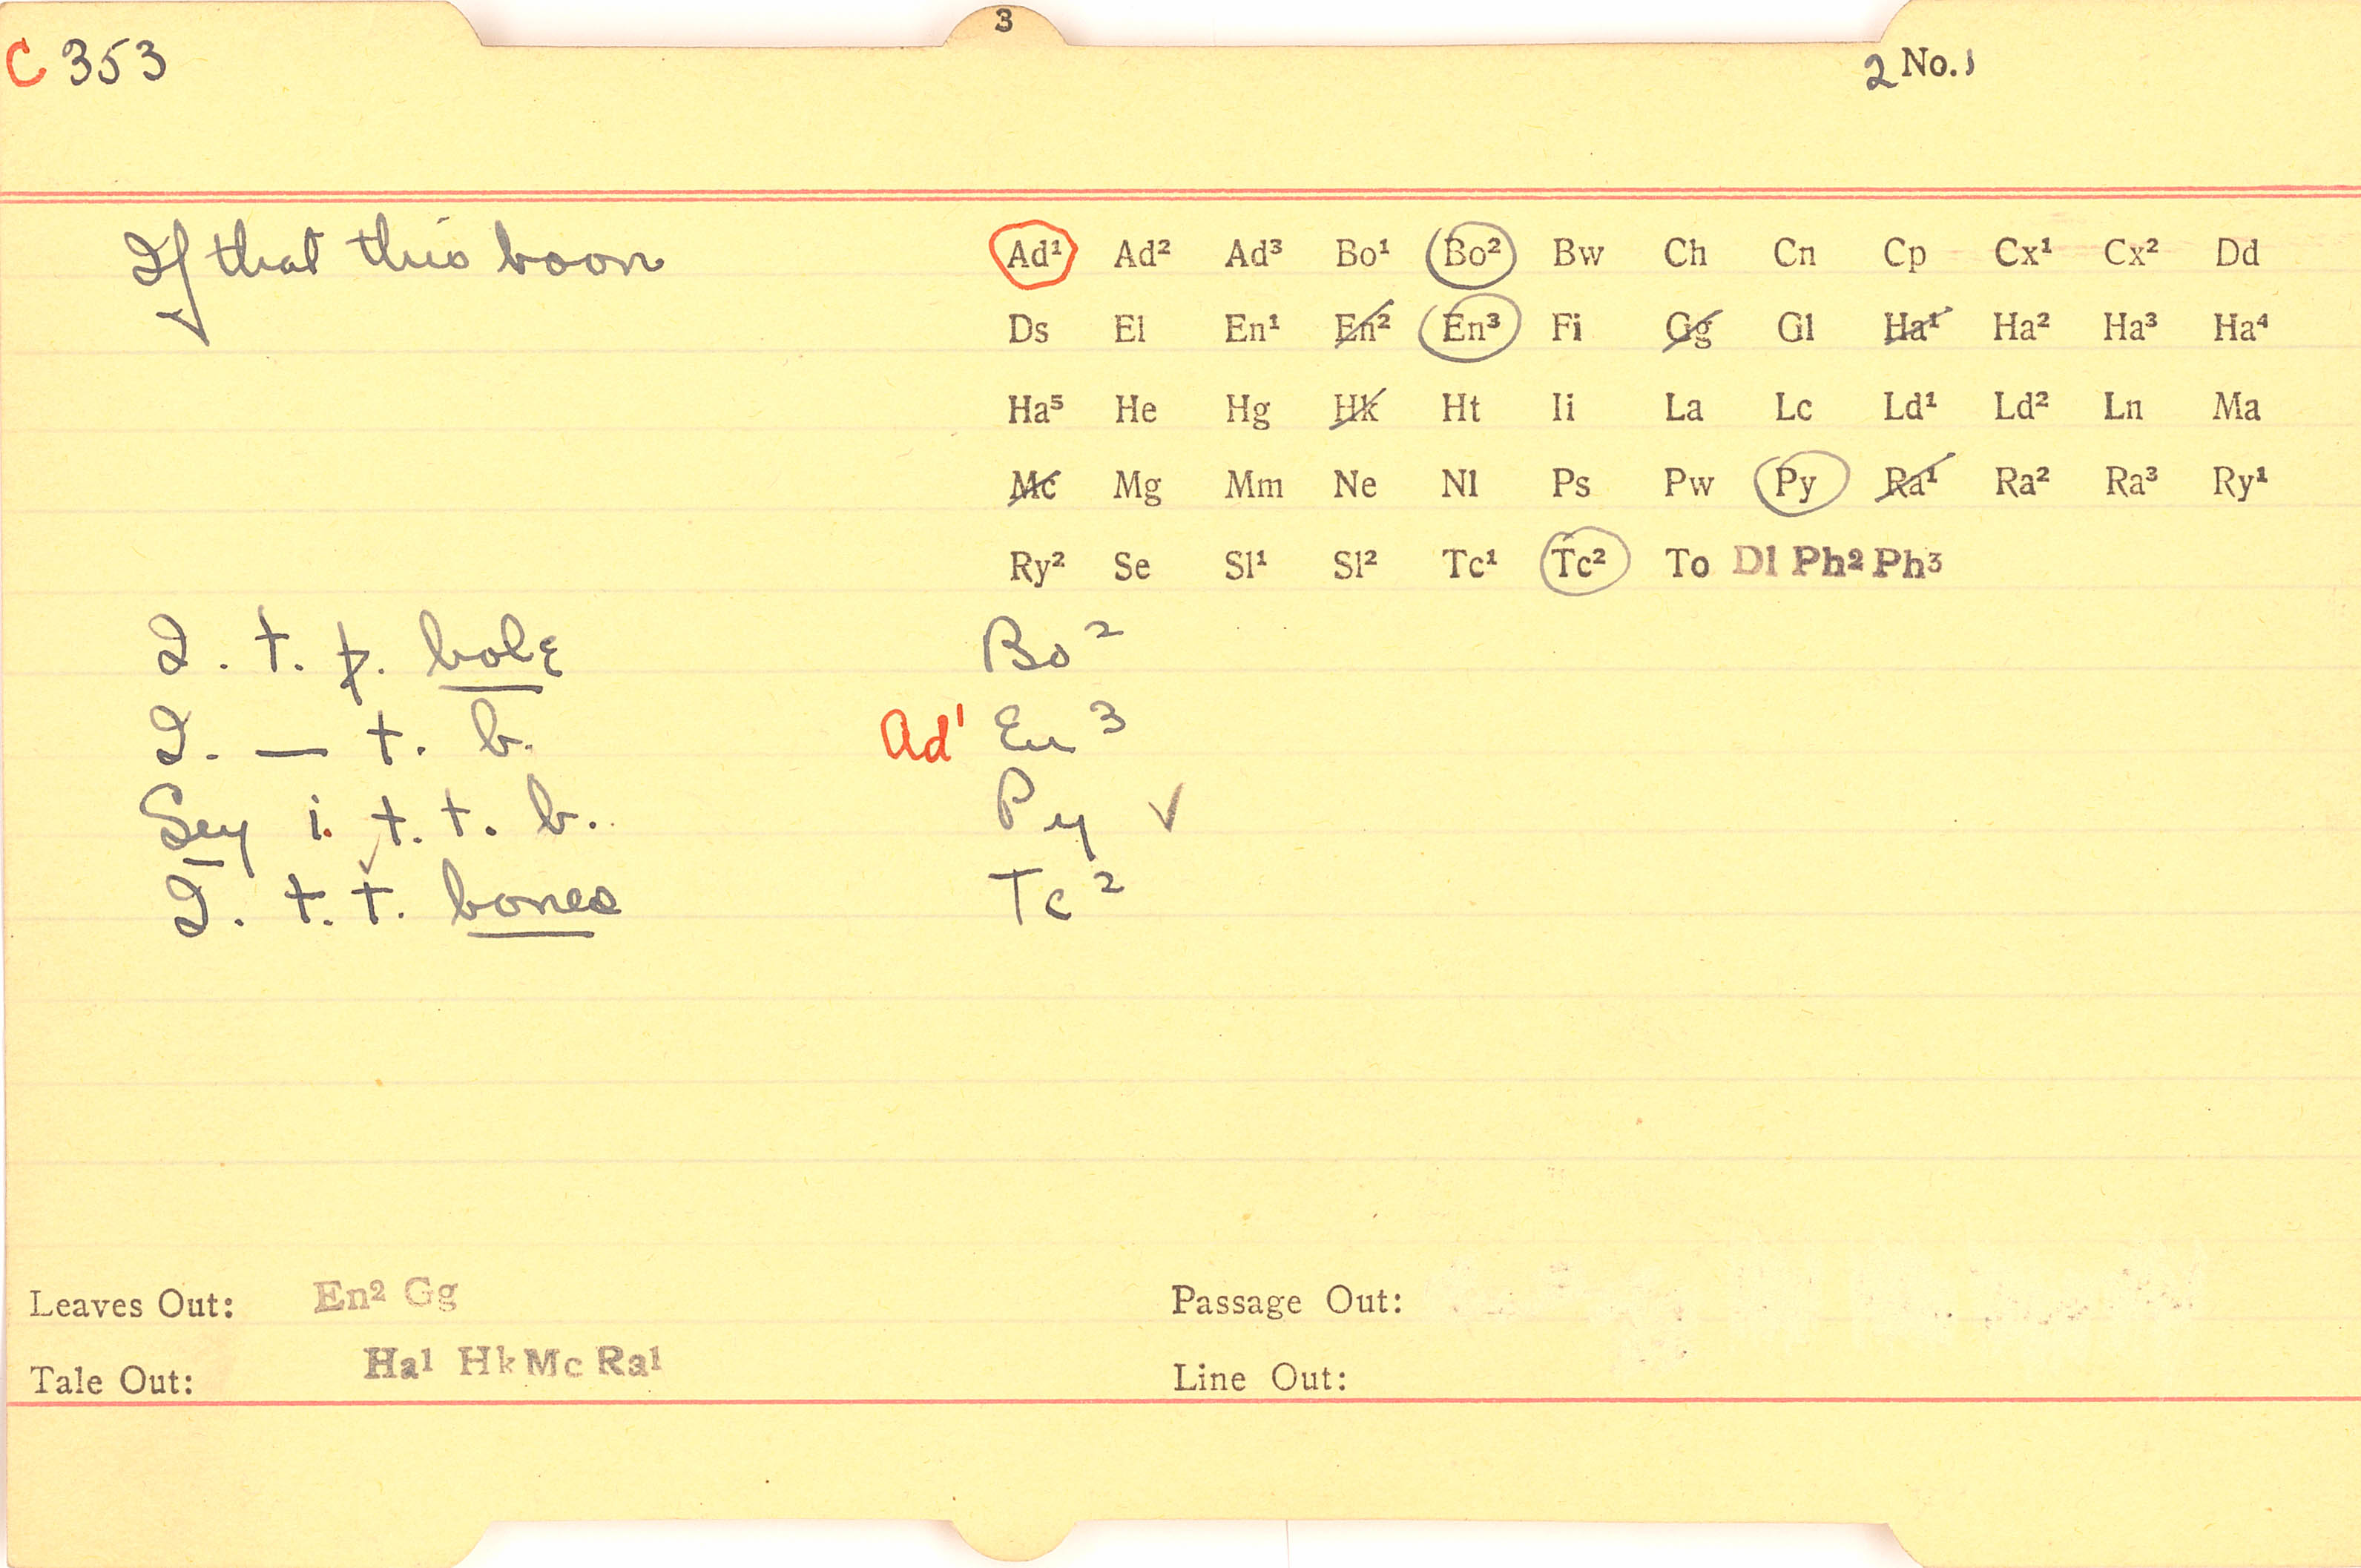 3
C 353
2 No. 1
If that this boon
Ad¹ Ad² Ad³ Bo¹ Bo² Bw Ch Cn Cp Cx¹ Cx² Dd
Ds El En¹ En² En³ Fi Gg Gl Ha¹ Ha² Ha³ Ha⁴
Ha⁵ He Hg Hk Ht Ii La Lc Ld¹ Ld² Ln Ma
Mc Mg Mm Ne Nl Ps Pw Py Ra¹ Ra² Ra³ Ry¹
Ry² Se Sl¹ Sl² Tc¹ Tc² To Dl Ph² Ph³
I. t. þ. bole Bo²
I. — t. b. Ad¹ En³
Sey i. t. t. b. Py ✓
I. t. t. bones Tc²
Leaves Out: En² Gg
Passage Out:
Tale Out: Ha¹ Hk Mc Ra¹
Line Out: